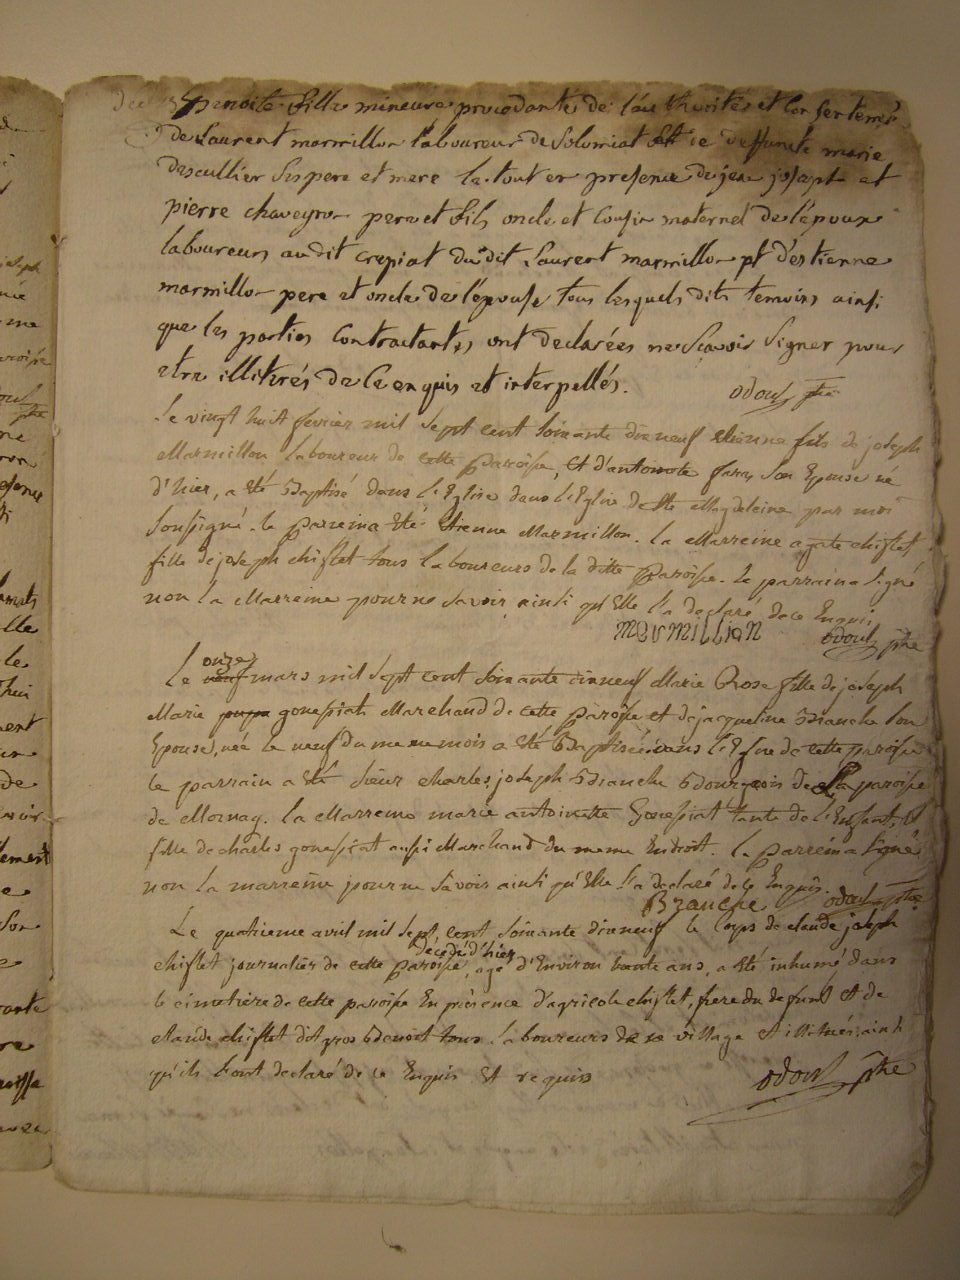 Benoite fille mineure procedante de l'authorité et consentemt
de Laurent marmillon laboureur de Solomiat et de deffuncte marie
descullier ses pere et mere le tout en presence de jean joseph et
pierre chaveyron pere et fils oncle et cousin maternel de l'epoux
laboureurs audit crepiat dudit Laurent marmillon pt d'estienne
marmillon pere et oncle de l'epouse tous lesquels dits temoins ainsi
que les parties contractantes ont declarées ne scavoir signer pour
etre illiterés de ce enquis et interpellés.
odoul ptre
Le vingt huit fevrier mil sept cent soixante dixneuf etienne fils de joseph
Marmillon laboureur de cette paroisse, et d'antoinette son Epouse né
d'hier, a été Baptisé dans l'Eglise dans l'Eglise de Ste Magdeleine par moi
soussigné. le parrein a été Etienne Marmillon. la Marreine agate chiflet
fille de joseph chiflet tous laboureurs de la ditte paroisse. le parrain a signé
non la Marreine pour ne savoir ainsi qu'Elle l'a declaré de ce Enquis
MerMilliон odoul ptre
onze
Le neuf mars mil sept cent soixante dixneuf Marie Rose fille de joseph
Marie gonessiat Marchand de cette paroisse et de jacqueline Branche son
Epouse, née le neuf du meme mois a été Baptisée dans l'Eglise de cette paroisse
le parrain a été sieur charles joseph Branche Bourgeois de la paroisse
de Mornay. la Marreine marie antoinette Gonessiat tante de l'Enfant, et
fille de charles gonessiat aussi Marchand du meme Endroit. le parrein a signé
non la marreine pour ne savoir ainsi qu'Elle l'a declaré de ce Enquis.
Branche odoul ptre
Le quatrieme avril mil sept cent soixante dixneuf le corps de claude joseph
décédé d'hier
chiflet journalier de cette paroisse, agé d'Environ trente ans, a été inhumé dans
le cimetiere de cette paroisse En présence d'agricole chiflet, frere du defunt et de
claude chiflet dit gros Benoit tous laboureurs de ce village et illitrés, ainsi
qu'ils l'ont declaré de ce Enquis et requis
odoul ptre